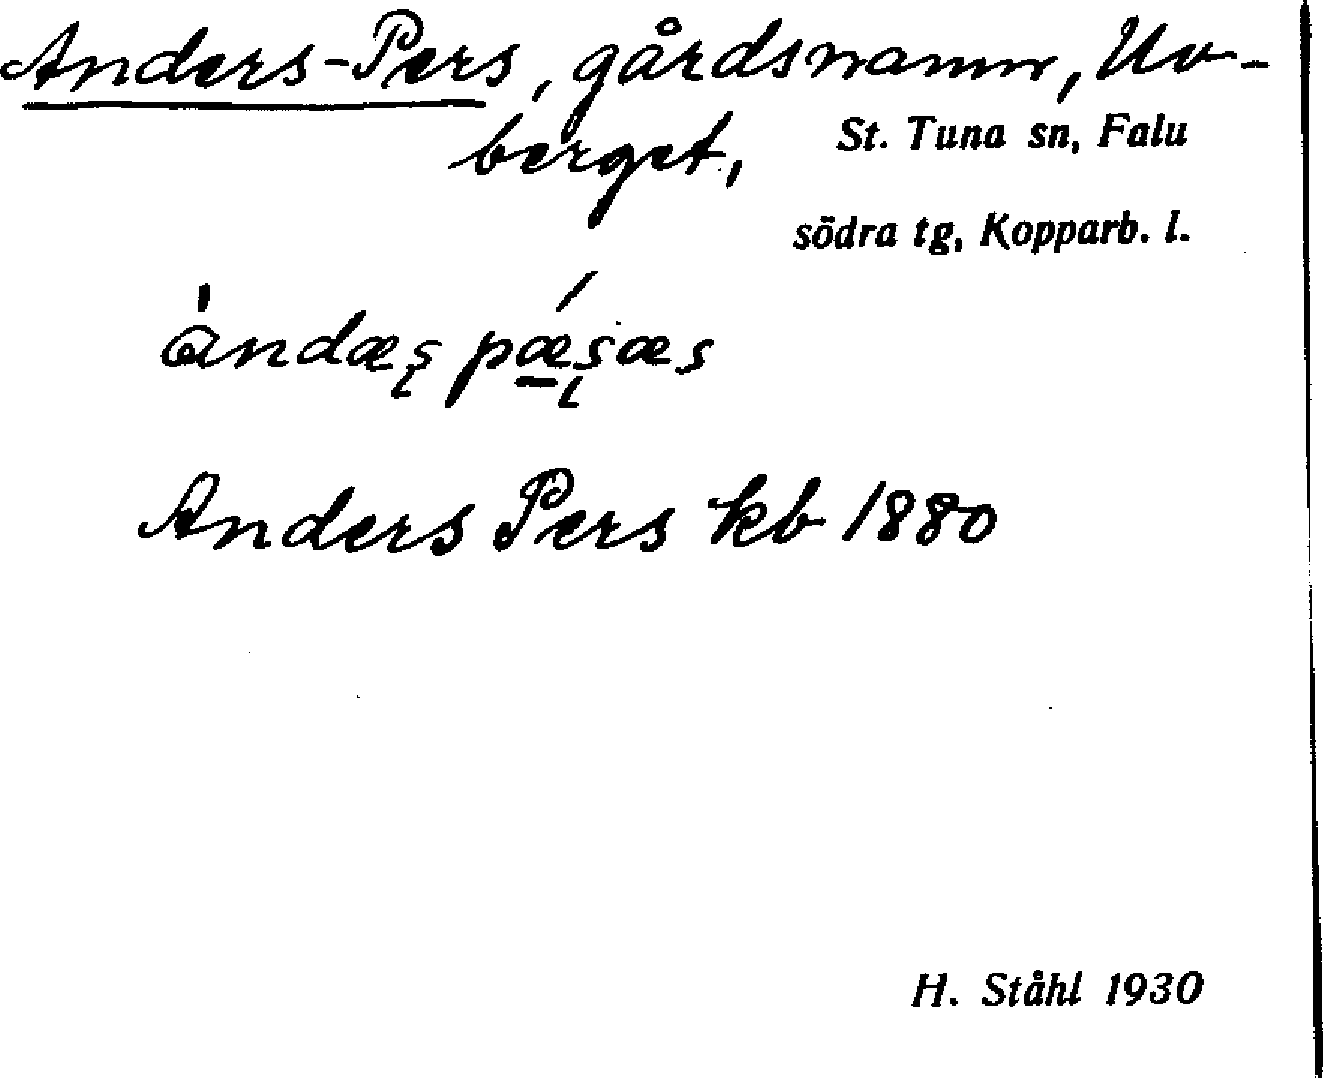 Anders-Pers, gårdsnamn, Uv-
berget, St. Tuna sn, Falu
södra tg, Kopparb. l.
Anders Pers kb 1880
H. Ståhl 1930